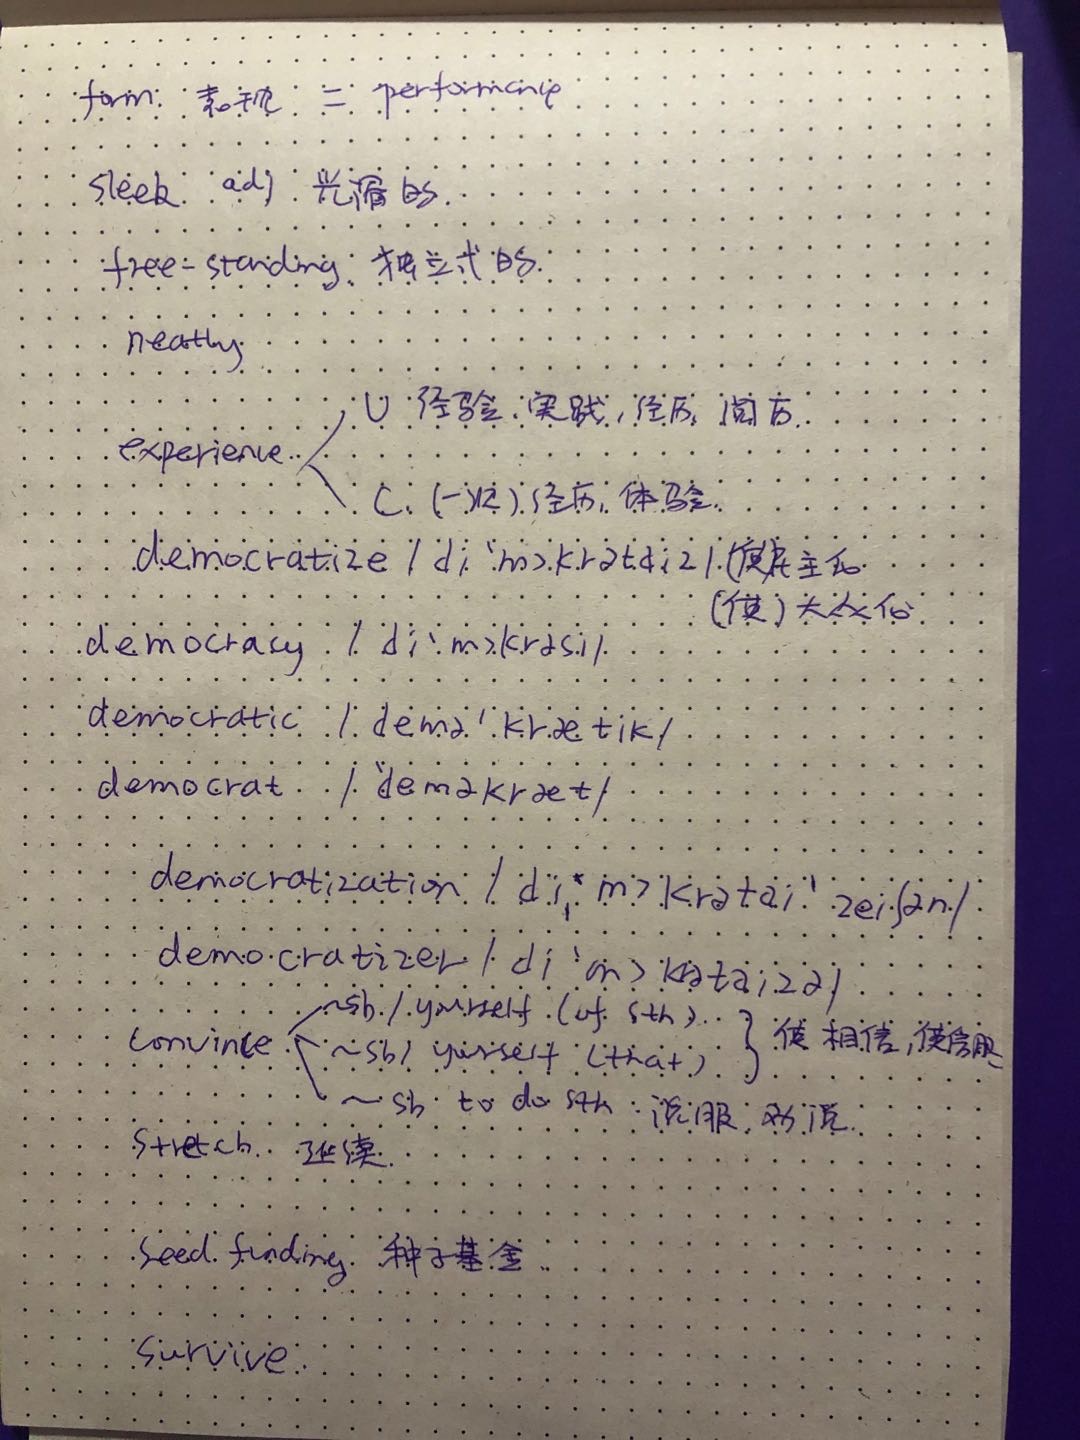 form 表现 = performance
sleek adj 光滑的.
free-standing 独立式的.
neatly
U 经验.实践,经历,阅历.
experience
C (一次)经历,体验.
democratize /di'mɔkrətaiz/ (使)民主化
(使)大众化
democracy /di'mɔkrəsi/
democratic /demə'krætik/
democrat /'deməkræt/
democratization /di,mɔkrətai'zeiʃən/
democratizer /di'mɔkrətaizə/
~sb/yourself (of sth)
convince ~sb/yourself (that) } 使相信,使信服
~sb to do sth 说服,劝说.
stretch 延续
seed funding 种子基金
survive